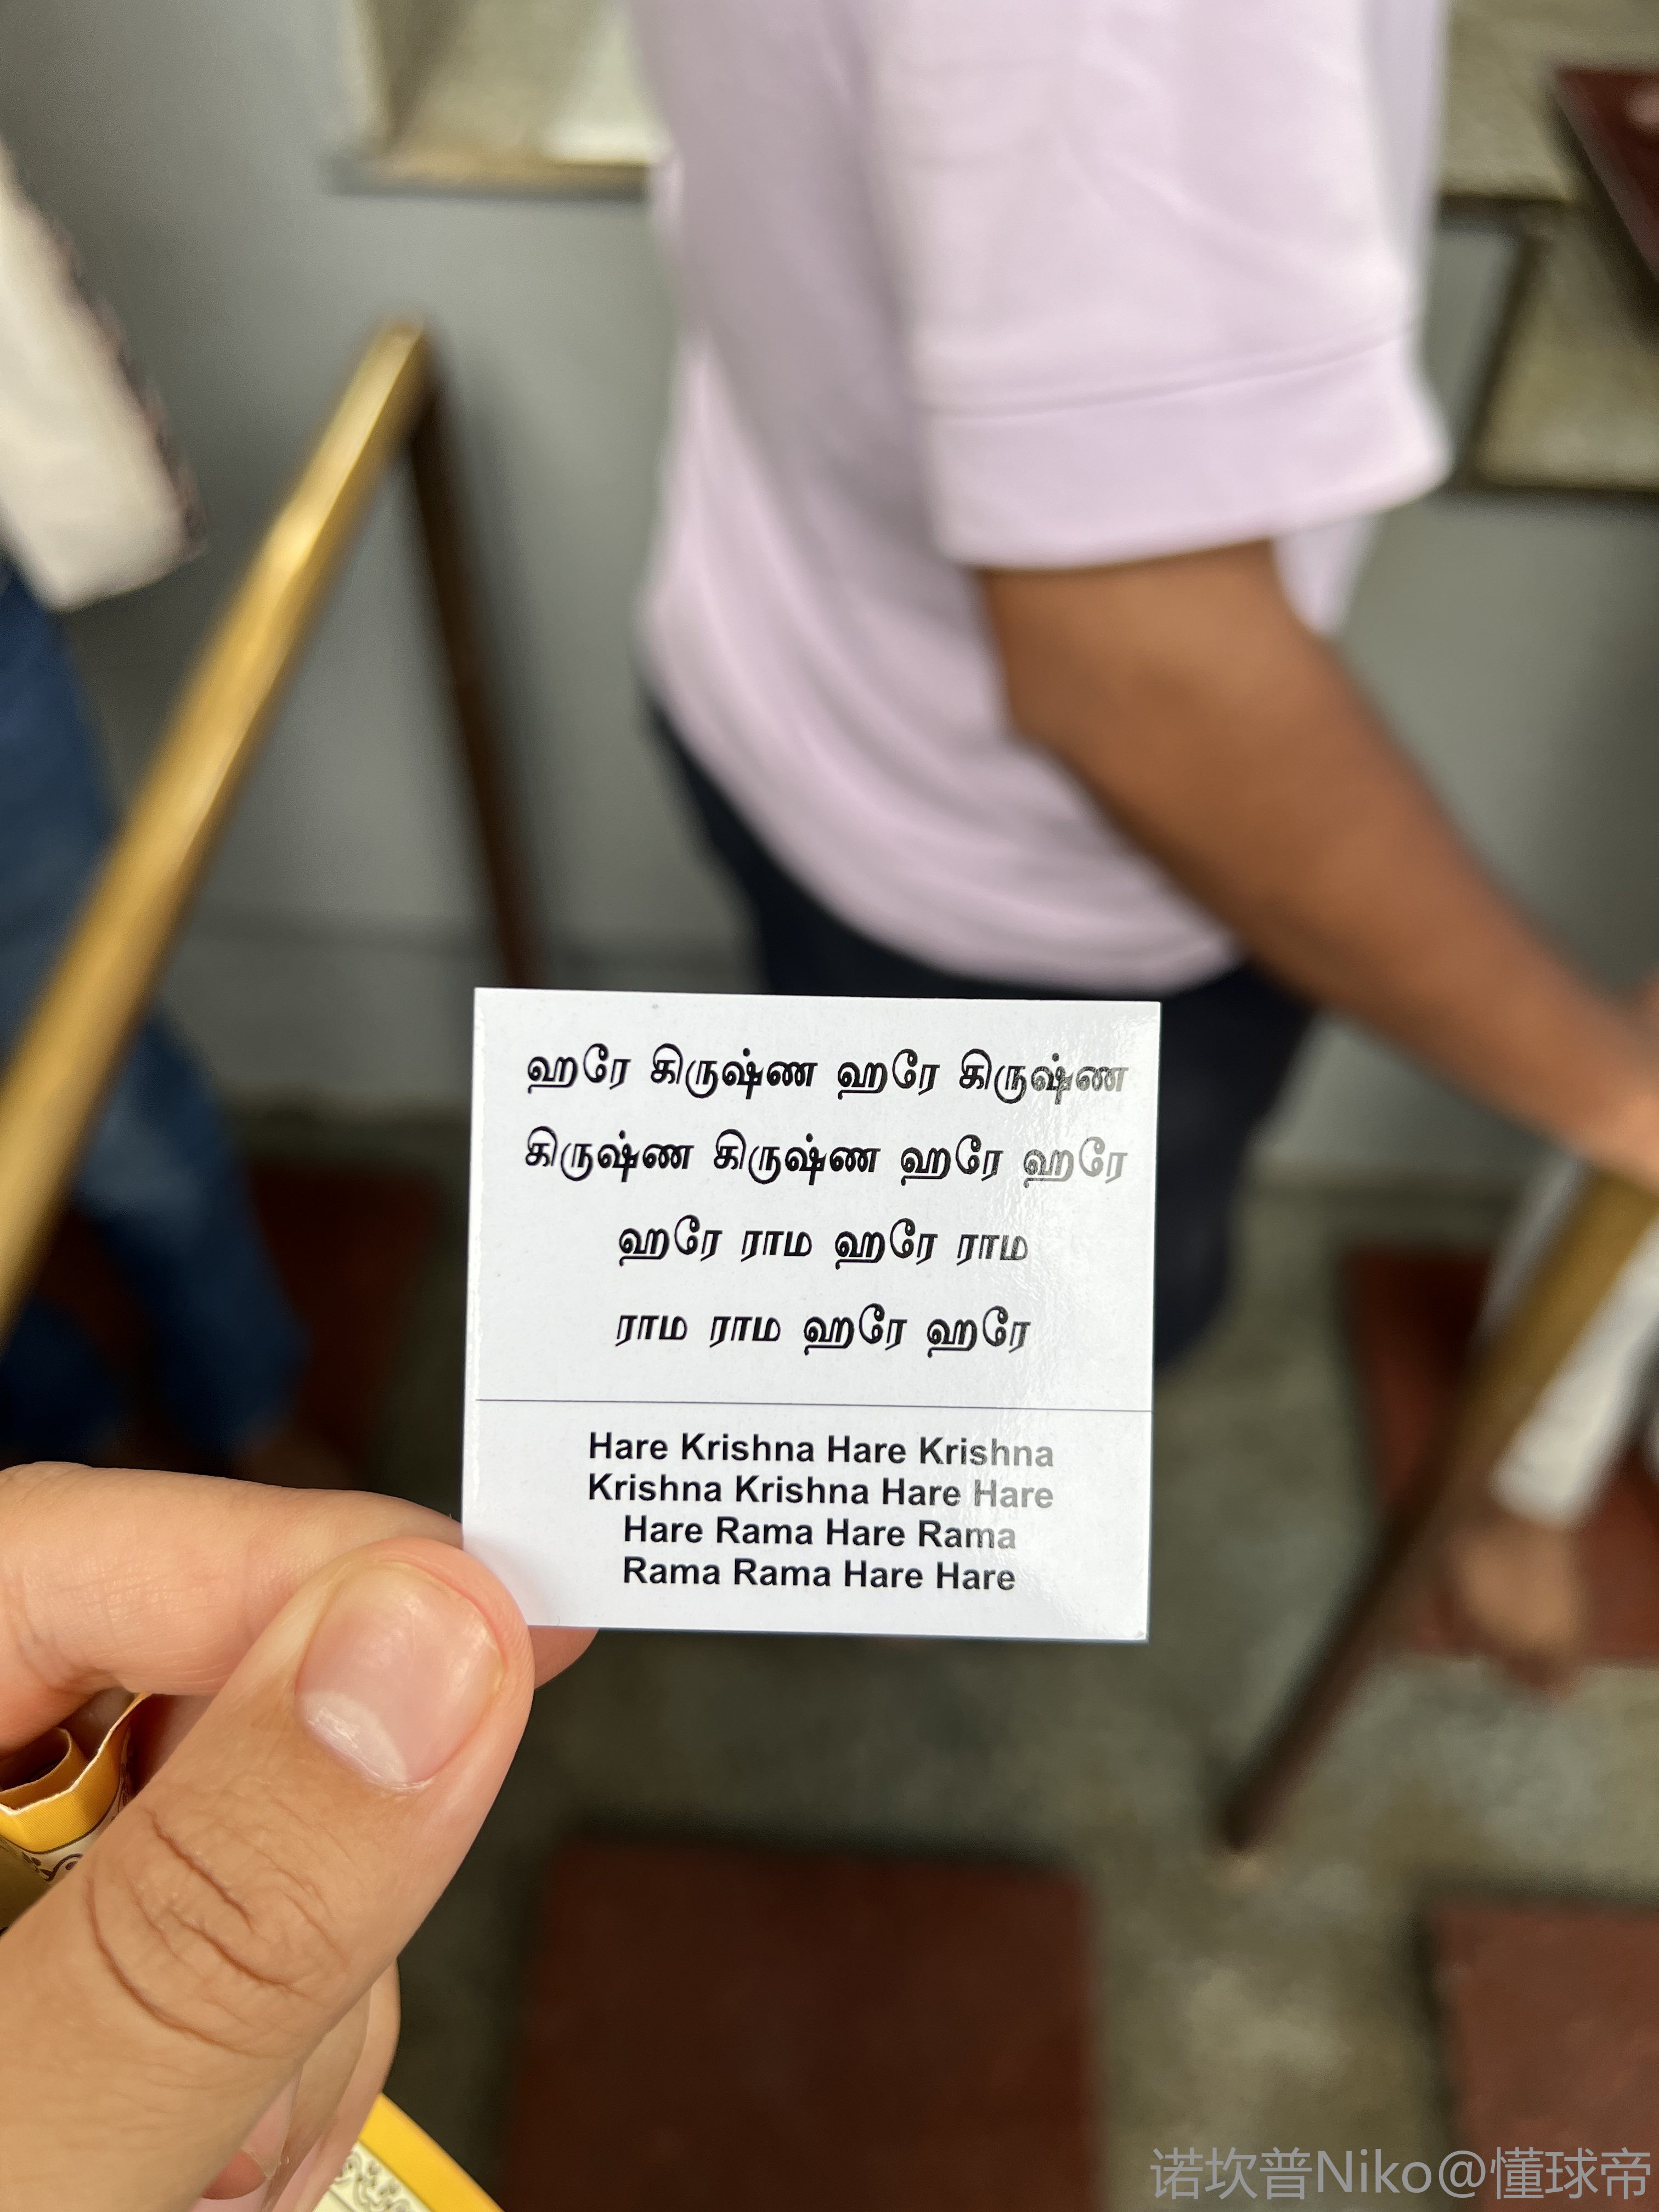 ஹரே கிருஷ்ண ஹரே கிருஷ்ண
கிருஷ்ண கிருஷ்ண ஹரே ஹரே
ஹரே ராம ஹரே ராம
ராம ராம ஹரே ஹரே
Hare Krishna Hare Krishna
Krishna Krishna Hare Hare
Hare Rama Hare Rama
Rama Rama Hare Hare
诺坎普Niko@懂球帝